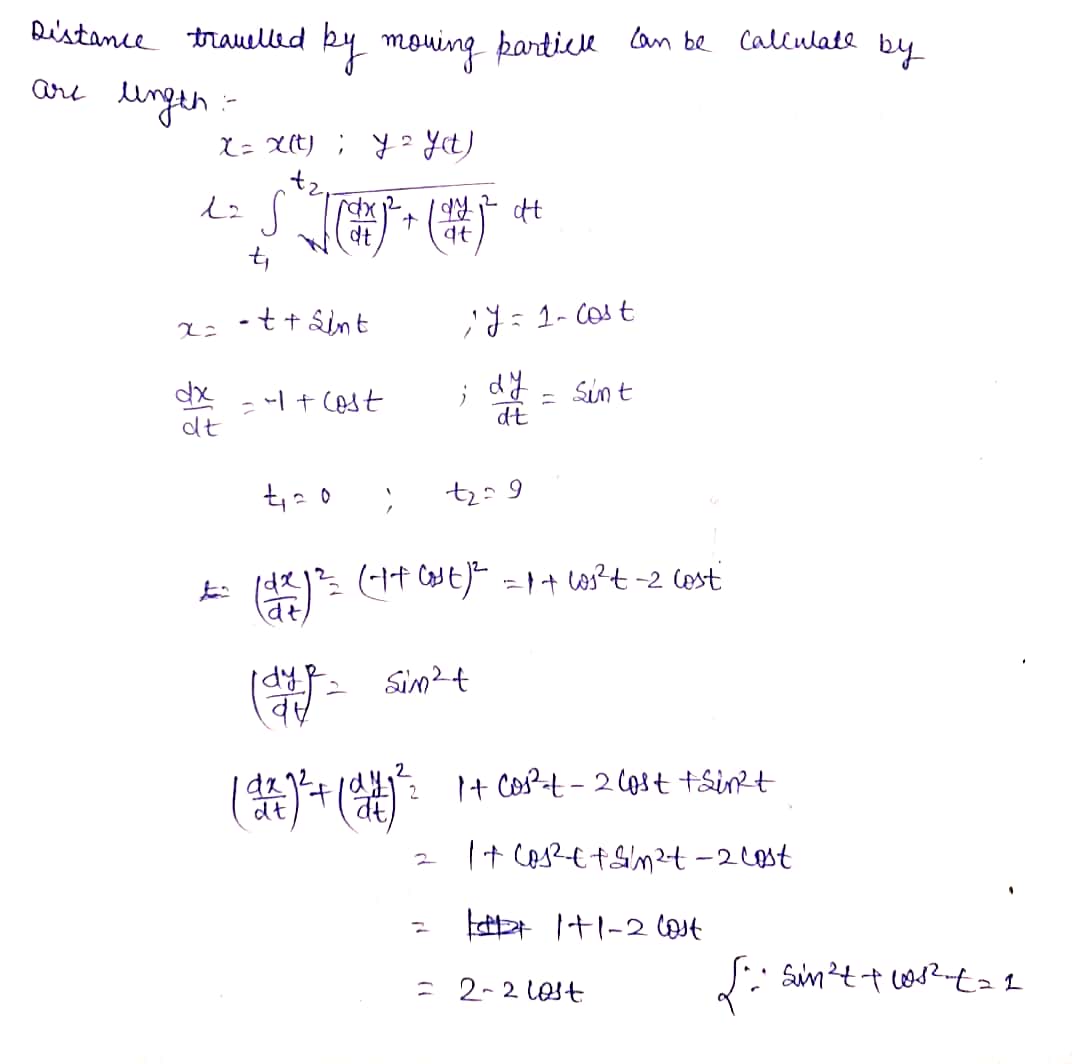 Distance travelled by moving particle can be calculate by
arc length :-
x = x(t) ; y = y(t)
L = ∫_{t₁}^{t₂} √((dx/dt)² + (dy/dt)²) dt
x = -t + sint ; y = 1 - cost
dx/dt = -1 + cost ; dy/dt = sin t
t₁ = 0 ; t₂ = 9
(dx/dt)² = (-1 + cost)² = 1 + cos²t - 2 cost
(dy/dt)² = sin²t
(dx/dt)² + (dy/dt)² = 1 + cos²t - 2 cost + sin²t
= 1 + cos²t + sin²t - 2 cost
= 1 + 1 - 2 cost
= 2 - 2 cost { ∵ sin²t + cos²t = 1